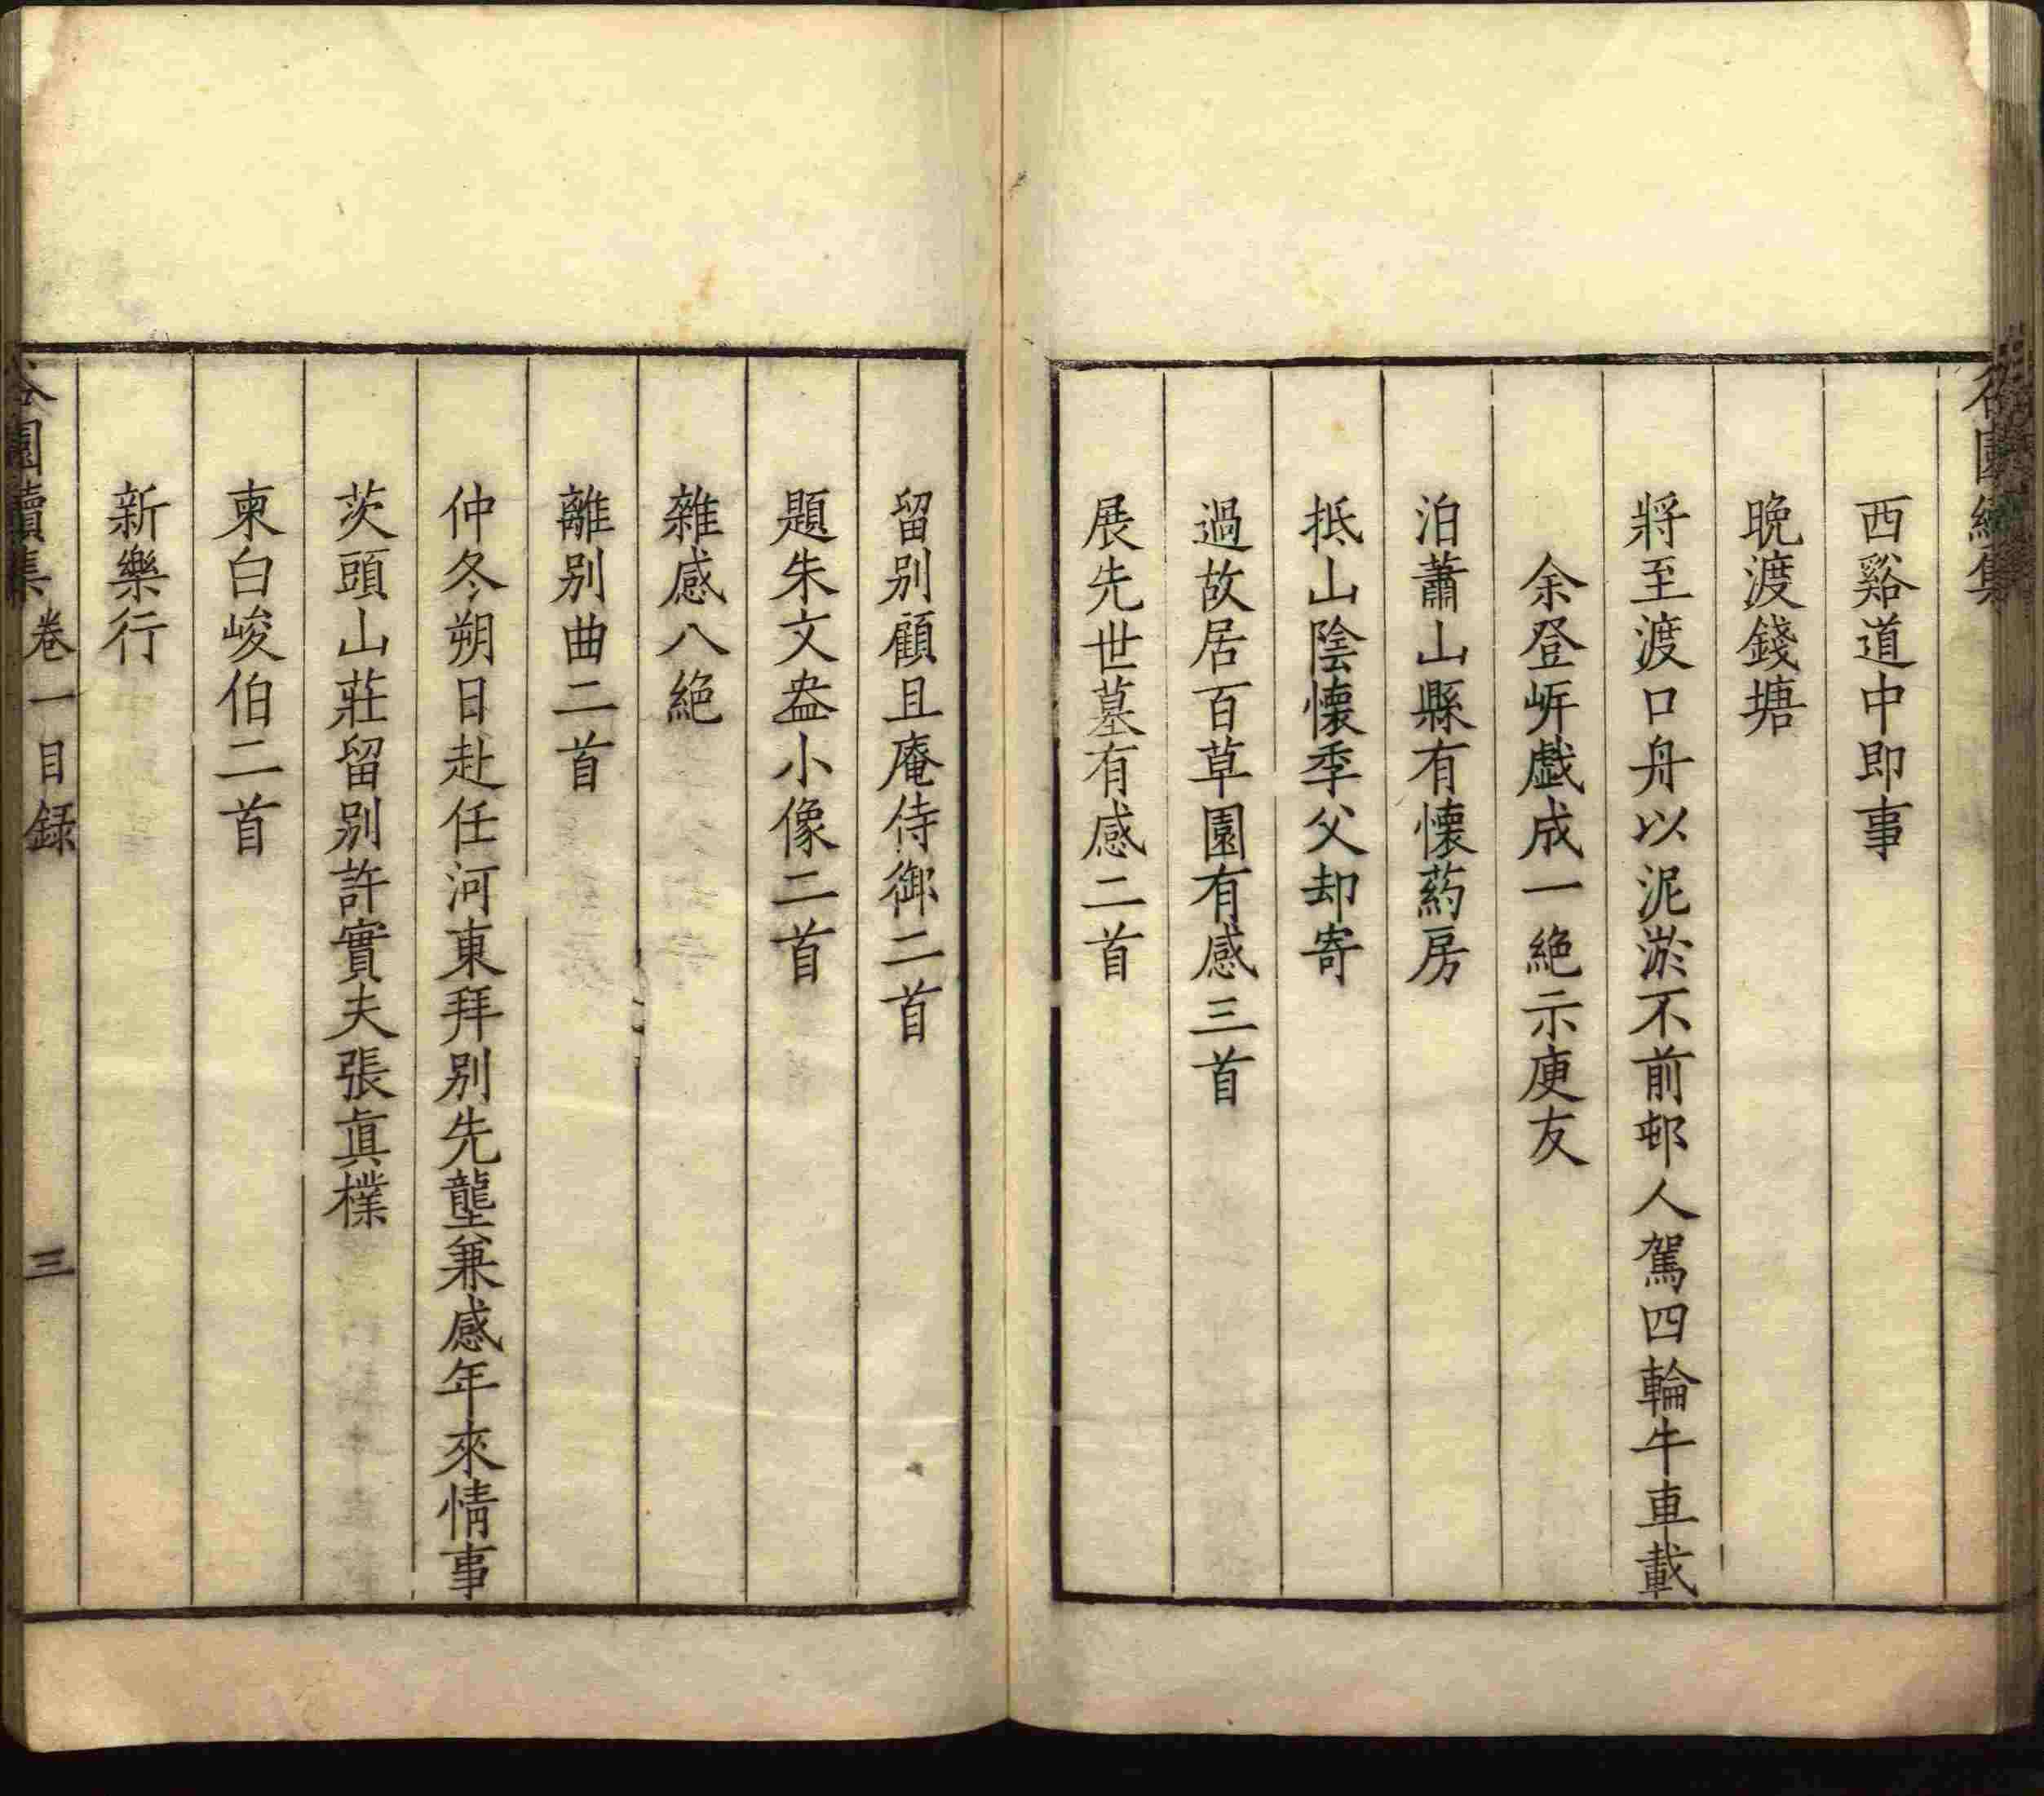 西谿道中即事
晚渡錢塘
將至渡口舟以泥淤不前邨人駕四輪牛車載
余登㟁戯成一絶示庚友
泊蕭山縣有懐葯房
抵山陰懐季父却寄
過故居百草園有感三首
展先世墓有感二首
留别顧且庵侍御二首
題朱文盎小像二首
雜感八絶
離别曲二首
仲冬朔日赴任河東拜别先壟兼感年來情事
茨頭山莊留别許實夫張眞樸
柬白峻伯二首
新樂行
園續集 卷一目録 三